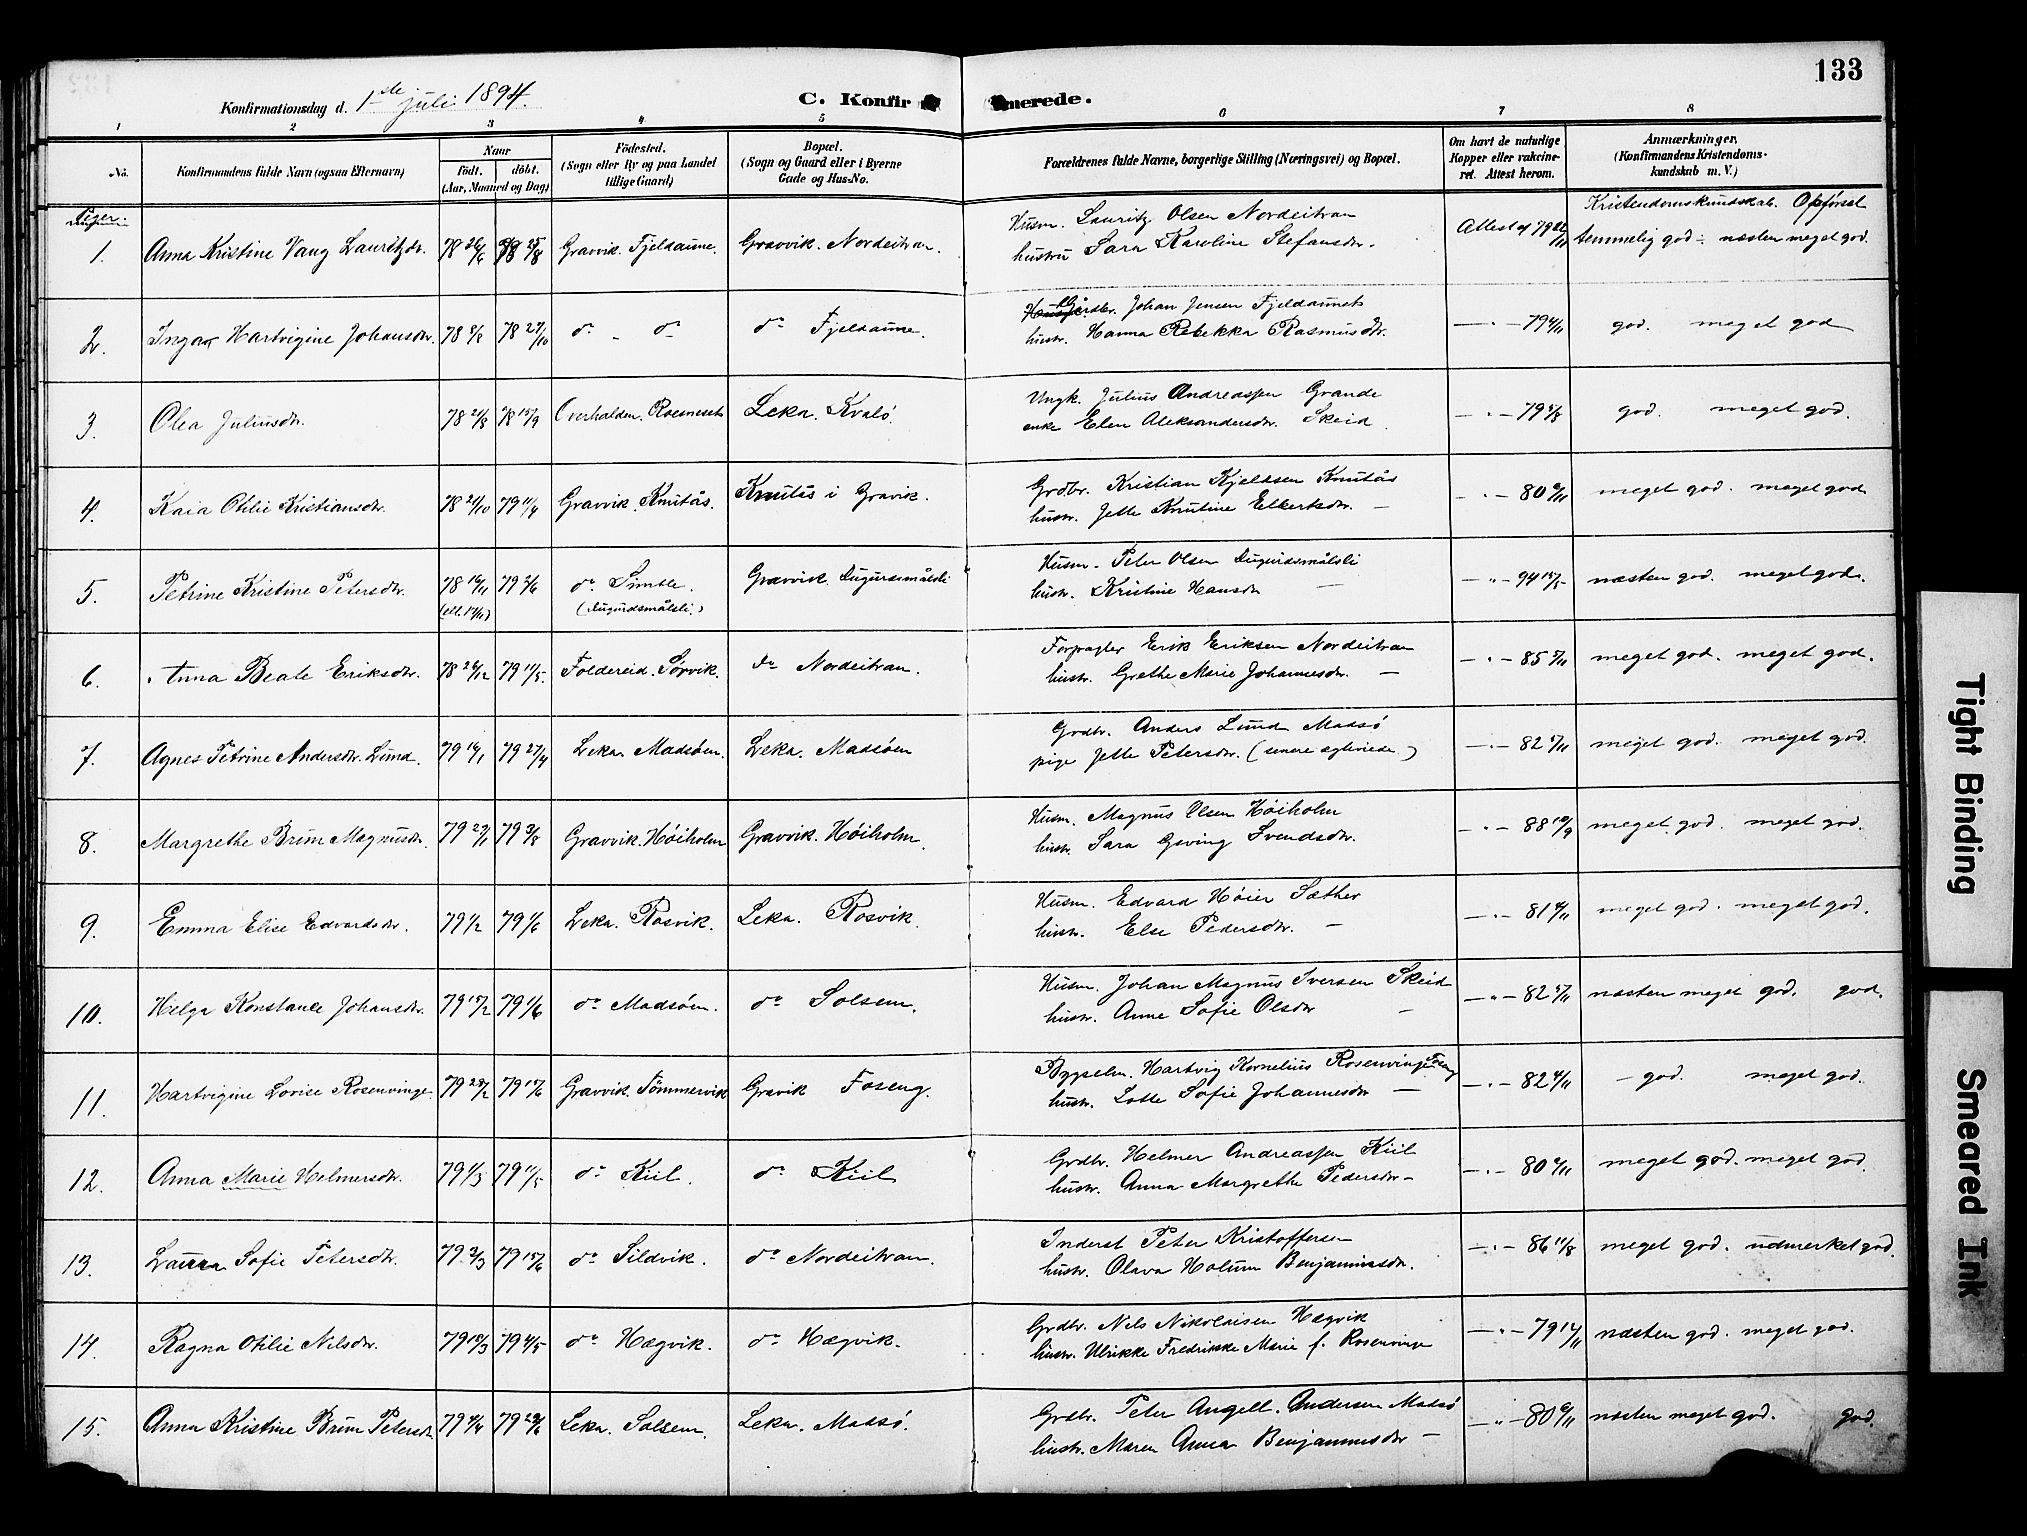 133
Konfirmationsdag d. 1ste juli 1894.
C. Konfirmerede.
1 2 3 4 5 6 7 8
No. Konfirmandens fulde Navn (ogsaa Efternavn) Naar födt. döbt. (Aar, Maaned og Dag) Födested. (Sogn eller By og paa Landet tillige Gaard) Bopæl. (Sogn og Gaard eller i Byerne Gade og Hus-No. Forældrenes fulde Navne, borgerlige Stilling (Næringsvei) og Bopæl. Om havt de naturlige Kopper eller vakcineret. Attest herom. Anmærkninger. (Konfirmandens Kristendomskundskab m. V.)
Piger:
Kristendomskundskab. Opførsel
1. Anna Kristine Vang Lauritzdr. 78 26/6 78 25/8 Gravvik. Fjeldaune. Gravvik. Nordeitran. Husm. Lauritz Olsen Nordeitran Attest af 79 temmelig god - næsten meget god.
hustru Sara Karoline Stefansdr.
2. Inga Hartvigine Johansdr. 78 78 27/10 do - do do Fjeldaune. Gårdbr. Johan Jensen Fjeldaunet — " — 79 4/11 god. meget god
hustr. Hanna Rebekka Rasmusdr.
3. Olea Juliusdr. 78 21/8 78 15/9 Overhalden. Leka. Kvalö. Ungk. Julius Andreassen Grande — " — 79 god. meget god.
enke Elen Aleksandersdr. Skeid
4. Kaia Otilie Kristiansdr. 78 21/10 79 11/4 Gravvik. Knutås. Knutås i Gravik. Grdbr. Kristian Kjeldsen Knutås — " — 80 6/11 meget god. meget god
hustr. Jette Knutine Elkertsdr. —
5. Petrine Kristine Petersdr. 78 16/11 79 2/6 do Simle. Gravvik. Dugurdsmålsli Husm. Peter Olsen Dugurdsmålsli — " — 94 15/5 næsten god. meget god.
(ell. 17/11) (Dugurdsmålsli) hustr. Kristine Hansdr —
6. Anna Beate Eriksdr. 78 26/12 79 11/5. Foldereid. Sørvik. do Nordeitran. Forpagter Erik Eriksen Nordeitran — " — 85 5/11 meget god. meget god.
hustr. Grethe Marie Johannesdr. —
7. Agnes Petrine Andersdr. Lund. 79 16/1 79 27/4 Leka. Madsöen. Leka. Madsöen Grdbr. Anders Lund Madsö — " — 82 5/11 meget god. meget god.
pige Jette Petersdr. (senere egteviede)
8. Margrethe Brun Magnusdr. 79 27/1 79 3/8 Gravvik. Höiholm Gravvik. Höiholm. Husm. Magnus Olsen Höiholm — " — 88 10/9 meget god. meget god.
hustr. Sara Gving Svendsdr.
9. Emma Elise Edvardsdr. 79 1/2 79 1/6 Leka. Rosvik. Leka. Rosvik. Husm. Edvard Höier Sæther — " — 81 4/11 meget god. meget god.
hustr. Else Pedersdr. —
10. Helga Konstance Johansdr. 79 17/2 79 1/6 do Madsöen. do Solsem. Husm. Johan Magnus Iversen Skeid — " — 82 5/11 næsten meget god. god.
hustr. Anne Sofie Olsdr —
11. Hartvigine Lovise Rosenvinge 79 79 15/6 Gravvik. Tömmervik Gravik Foseng. Bygselm. Hartvig Kornelius Rosenvinge — " — 82 4/11 - god. meget god.
hustr. Lotte Sofie Johannesdr —
12. Anna Marie Helmersdr. 79 1/3 79 11/5 do Kiil. do Kiil Grdbr. Helmer Andreassen Kiil — " — 80 6/11 meget god. meget god.
hustr. Anna Margrethe Pedersdr —
13. Laura Sofie Petersdr. 79 2/3 79 15/6 do Sildvik. do Nordeitran. Inderst Peter Kristoffersen — " — 86 11/8 meget god. udmerket god.
hustr. Olava Holum Benjaminsdr.
14. Ragna Otilie Nilsdr. 79 79 4/5 do Hægvik. do Hægvik. Grdbr. Nils Nikolaisen Hægvik — " — 79 næsten god. meget god.
hustr. Ulrikke Fredrikke Marie f. Rosenvinge
15. Anna Kristine Brun Petersdr. 79 4/4 79 Leka. Solsem. Leka. Madsö. Grdbr. Peter Angell Andersen Madsö — " — 80 6/11 næsten meget god. god.
hustr. Maren Anna Benjaminsdr —
Tight Binding
Smeared Ink